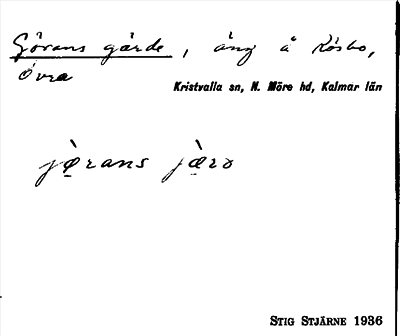 Görans gärde, äng å Rösbo,
Övra
Kristvalla sn, N. Möre hd, Kalmar län
jœ̀rans jæ̀rə
STIG STJÄRNE 1936